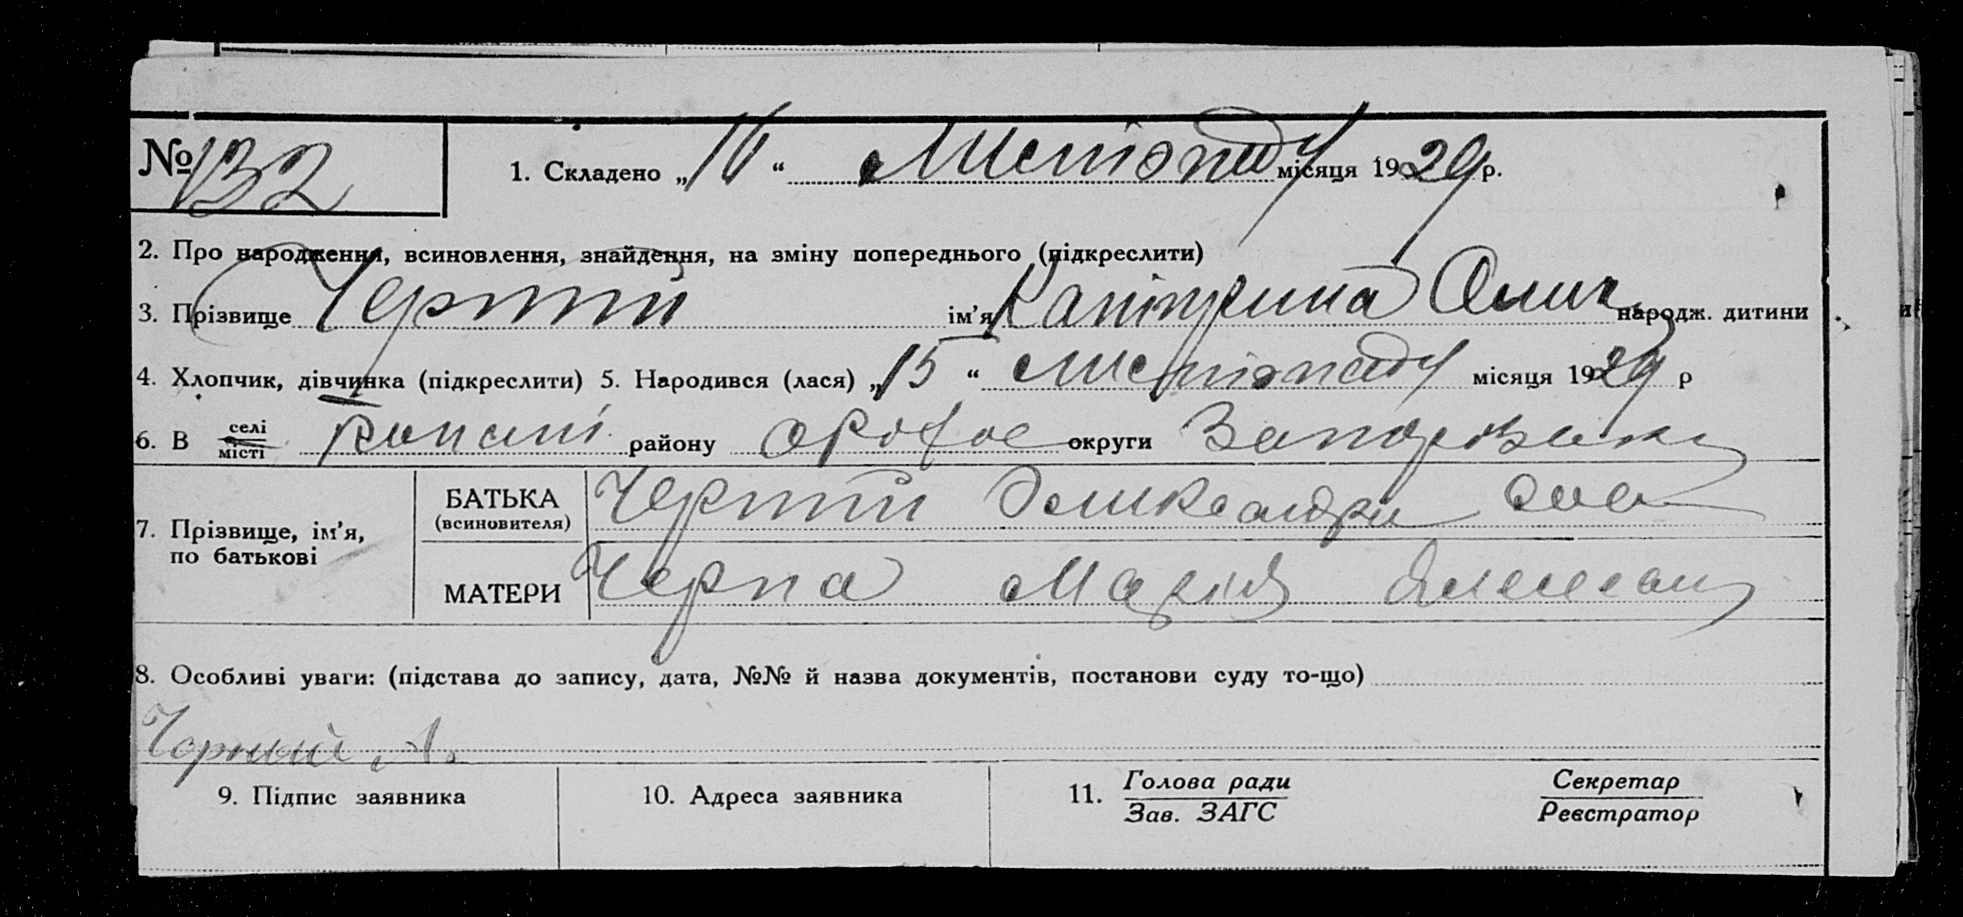 № 132 1. Складено „16“ листопаду місяця 1929 р.
2. Про народження, всиновлення, знайдення, на зміну попереднього (підкреслити)
3. Прізвище Чорний ім’я Катерина народж. дитини
4. Хлопчик, дівчинка (підкреслити) 5. Народився (лася) „15“ листопаду місяця 1929 р
6. В селі
місті
району округи
7. Прізвище, ім’я,
по батькові
БАТЬКА
(всиновителя)
Чорний
МАТЕРИ Чорна Марія
8. Особливі уваги: (підстава до запису, дата, №№ й назва документів, постанови суду то-що)
Чорный А.
9. Підпис заявника 10. Адреса заявника 11. Голова ради Секретар
Зав. ЗАГС Реєстратор